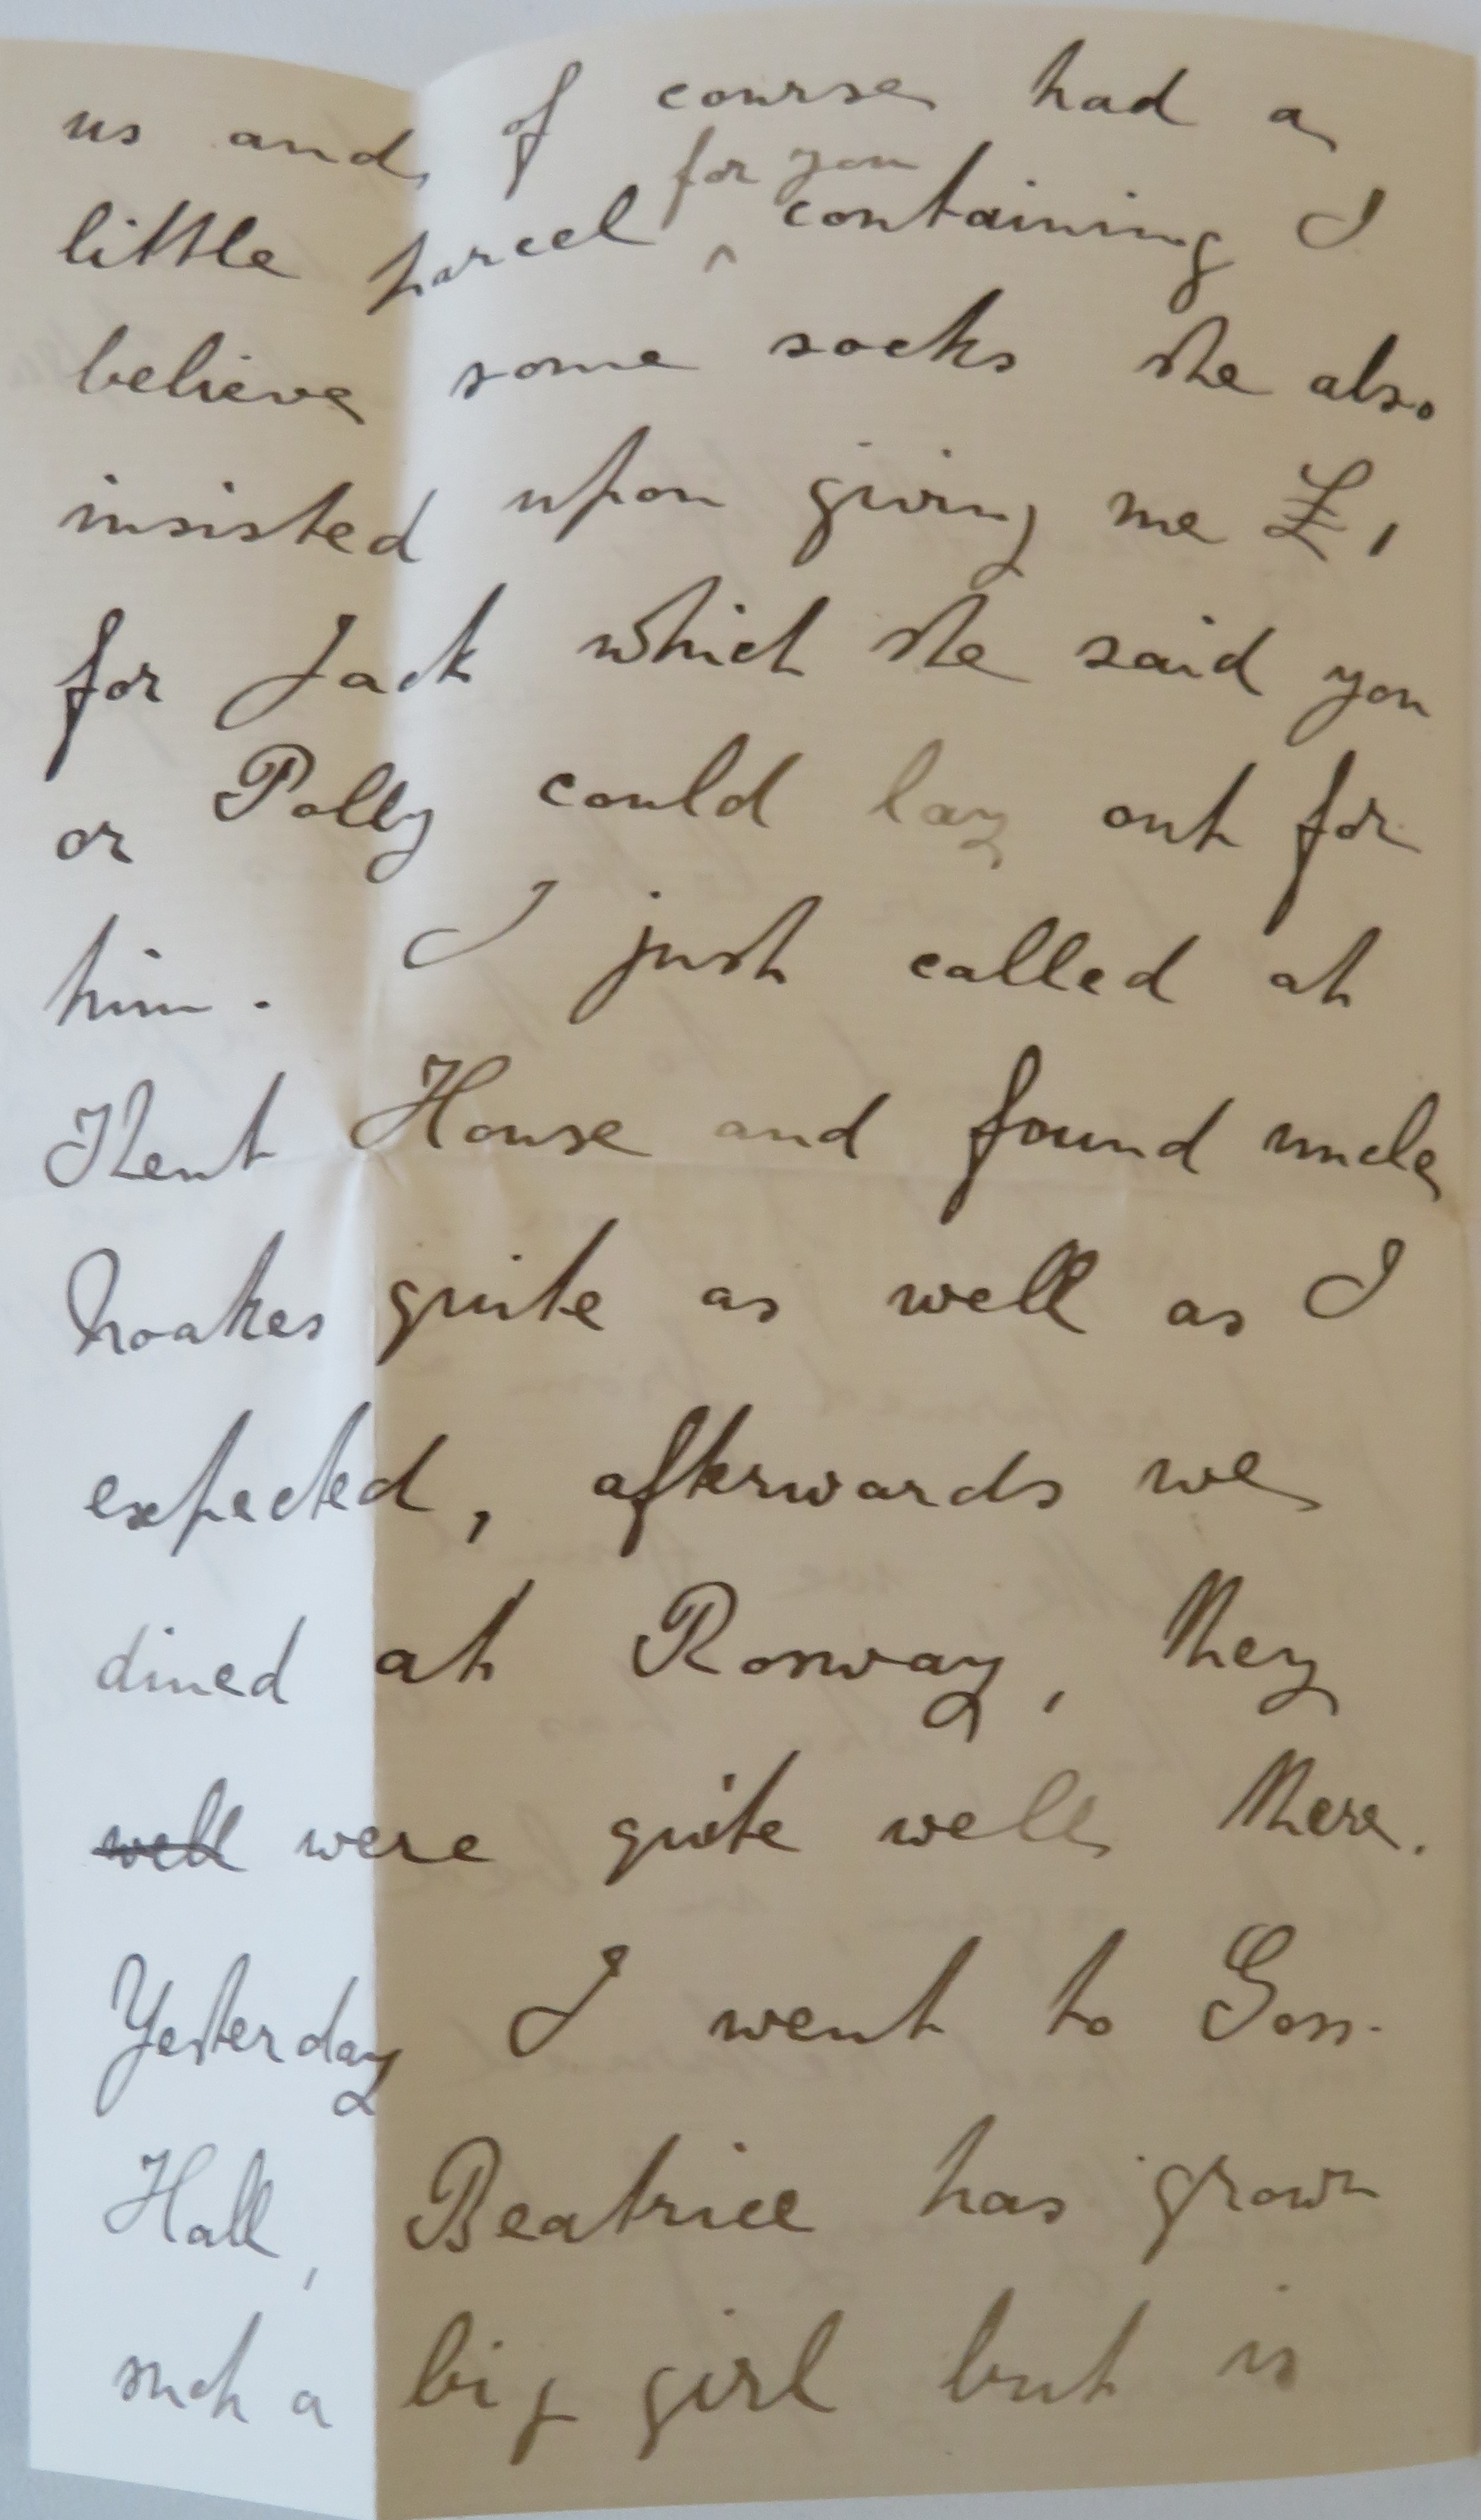 us and, of course had a
little parcel for you containing I
believe some socks she also
insisted upon giving me £1
for Jack which she said you
or Polly could lay out for
him. I just called at
Kent House and found uncle
Noakes quite as well as I
expected, afterwards we
dined at Rosway, they
well were quite well there.
Yesterday I went to Goss.
Hall, Beatrice has grown
such a big girl but is